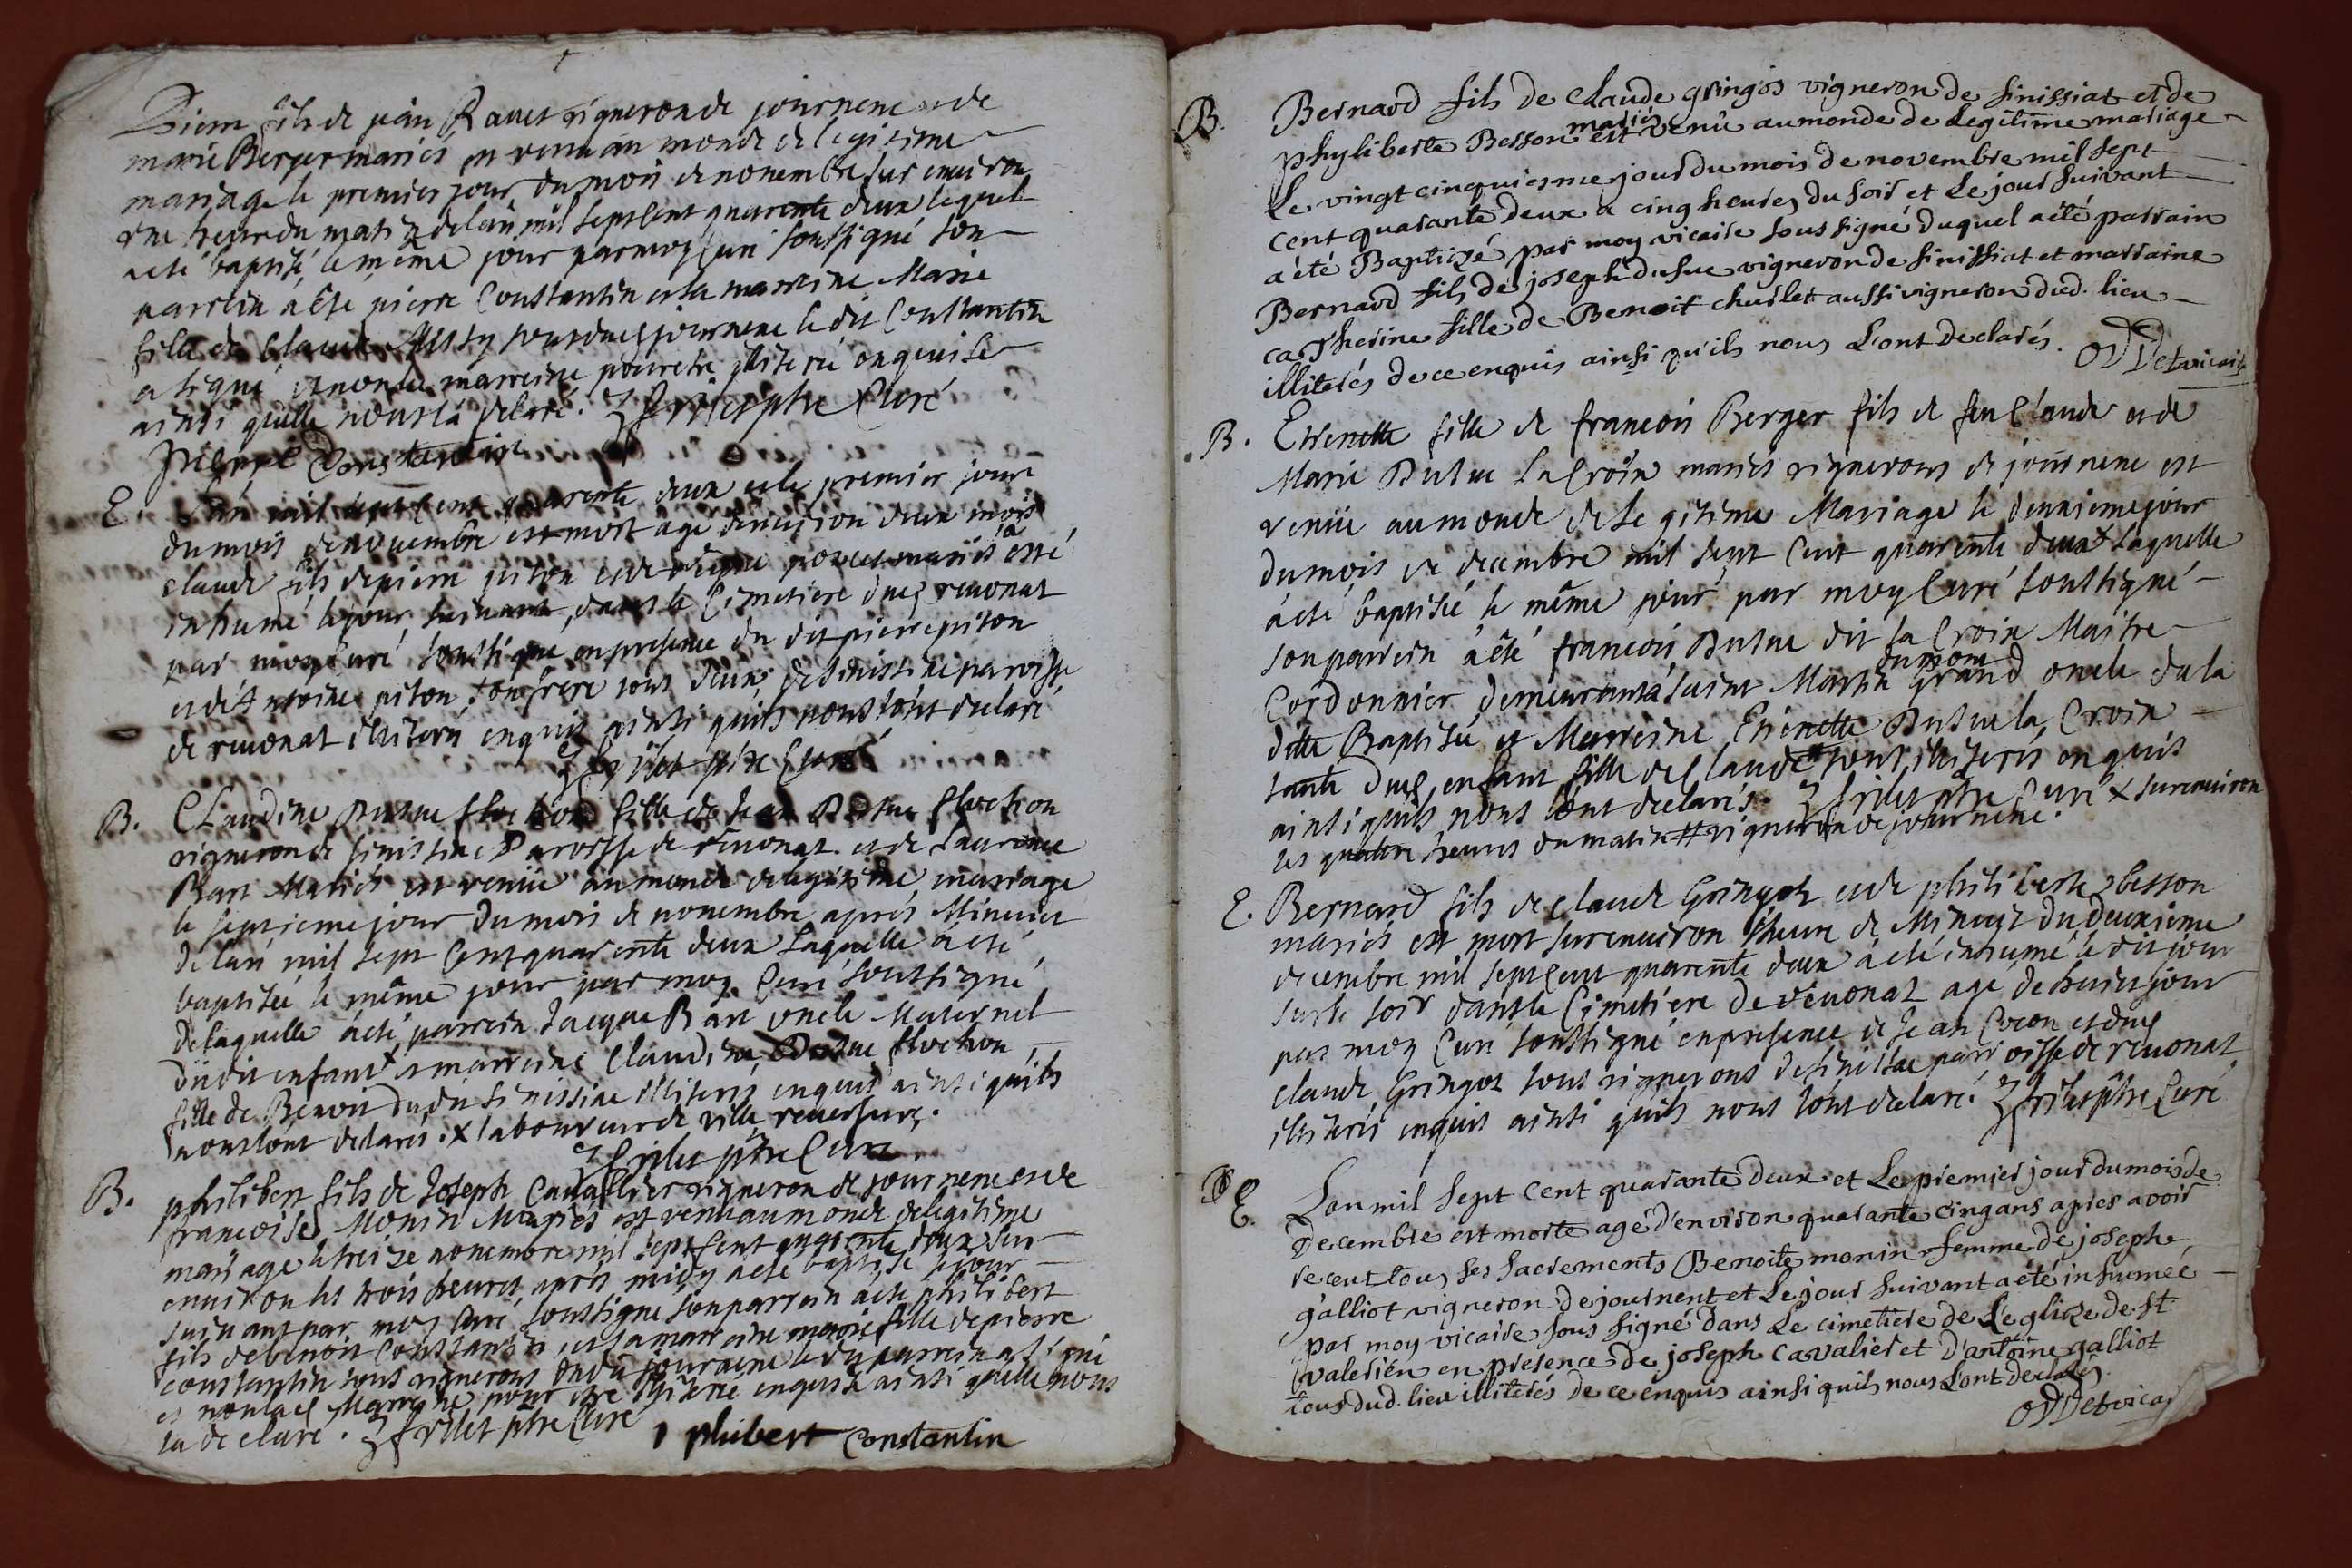 Pierre fils de jean Ravet vigneron de journene et de
marie Berger mariés est venu au monde de legitime
mariage le premier jour du mois de novembre sur environ
une heure du matin de lan mil sept cent quarente deux lequel
a été baptisé le même jour par moy curé soussigné son
parrein a été pierre Constantin et la marreine Marie
fille de Claude journene le dit Constantin
a signé et non la marreine pour etre illiterée enquise
ainsi quelle nous la declaré. ptre Curé
pierre Constantin
E. L'an mil sept cent quarente deux et le premier jour
du mois de novembre est mort agé d'environ deux mois
claude fils de pierre piton et de mariés a esté
inhumé le jour suivant dans le Cimetiere dud revonat
par moy curé soussigné en presence du dit pierre piton
et d'Antoine piton son frere tous deux de paroisse
de revonat illiterés enquis ainsi quils nous lont declaré
ptre Curé
B. CLaudine Dusue flochon fille de Jean Dusue flochon
vigneron de sinissiac Paroisse de revonat et de Laurence
Bart Mariés est venüe au monde de legitime mariage
le septieme jour du mois de novembre aprés Minuict
de lan mil sept Cent quarente deux Laquelle a été
baptisée le même jour par moy Curé soussigné
de laquelle a été parrein Jacque Bart oncle Maternel
du dit enfant x et marreine Claudine Dusue flochon
fille de Benoit du dit sinissiac illiterés enquis ainsi quils
nous lont declarés. x laboureur de ville reversure.
ptre Curé
B. philibert fils de Joseph Cavallier vigneron de journene et de
francoise Monin Mariés est venu au monde de legitime
mariage le treize novembre mil sept Cent quarente deux sur
environ les trois heures aprés midy a été baptisé le jour
suivant par moy Curé soussigné son parrein a été philibert
fils de benoit Constantin, et sa marraine marie fille de pierre
constantin tous vignerons dudit journene ledit parrein a signé
et non lad Marreine pour etre illiterée enquise ainsi quelle nous
la declaré. ptre Curé philibert constantin
B. Bernard fils de Claude gringos vigneron de sinissiat et de
phyliberte Besson mariés est venû au monde de Legitime mariage
Le vingt cinquiesme jour du mois de novembre mil sept
cent quarante deux a cinq heures du soir et Le jour suivant
a été Baptizé par moy vicaire sous signé duquel a été parrain
Bernard fils de joseph dusue vigneron de sinissiat et marraine
catherine fille de Benoit churlet aussi vigneron dud. lieu
illiterés de ce enquis ainsi qu'ils nous L'ont declarés. ODDet vicaire
B. Etienette fille de francois Berger fils de feu Claude et de
Marie Dusue LaCroix mariés vignerons de journene est
venüe au monde de Legitime Mariage le deuxieme jour
du mois de decembre mil sept Cent quarente deux x Laquelle
a été baptisée le même jour par moy Curé soussigné
son parrein a été francois Dusue dit la Croix Maitre
Cordonnier demeurant a saint Martin du mont grand oncle de la
ditte Baptisée et Marreine Etienette Dusue la Croix
tante dud enfant fille de Claude # tous illiterés enquis
ainsi quils nous lont declarés. ptre Curé x sur environ
les quatre heures du matin # vigneron de journene.
E. Bernard fils de claude Gringoz et de philiberte besson
mariés est mort sur environ l'heure de Minuit du deuxieme
decembre mil sept cent quarente deux a été inhumé le dit jour
sur le soir dans le Cimetiere de revonat agé de huict jour
par moy Curé soussigné en presence de Jean Cocon et dud
claude Gringoz tous vignerons de sinissiac paroisse de revonat
illiterés enquis ainsi quils nous lont declaré. ptre Curé
E. Lan mil sept cent quarante deux et Le premier jour du mois de
Decembre est morte agé d'environ quarante cinq ans apres avoir
receut tous ses sacrements Benoite monin femme de joseph
galliot vigneron de journent et Le jour suivant a été inhumée
par moy vicaire sous signé dans Le cimetiere de L'eglize de St
valerien en presence de joseph cavalier et d'antoine galliot
tous dud. lieu illiterés de ce enquis ainsi quils nous Lont declarés
ODDet vicar